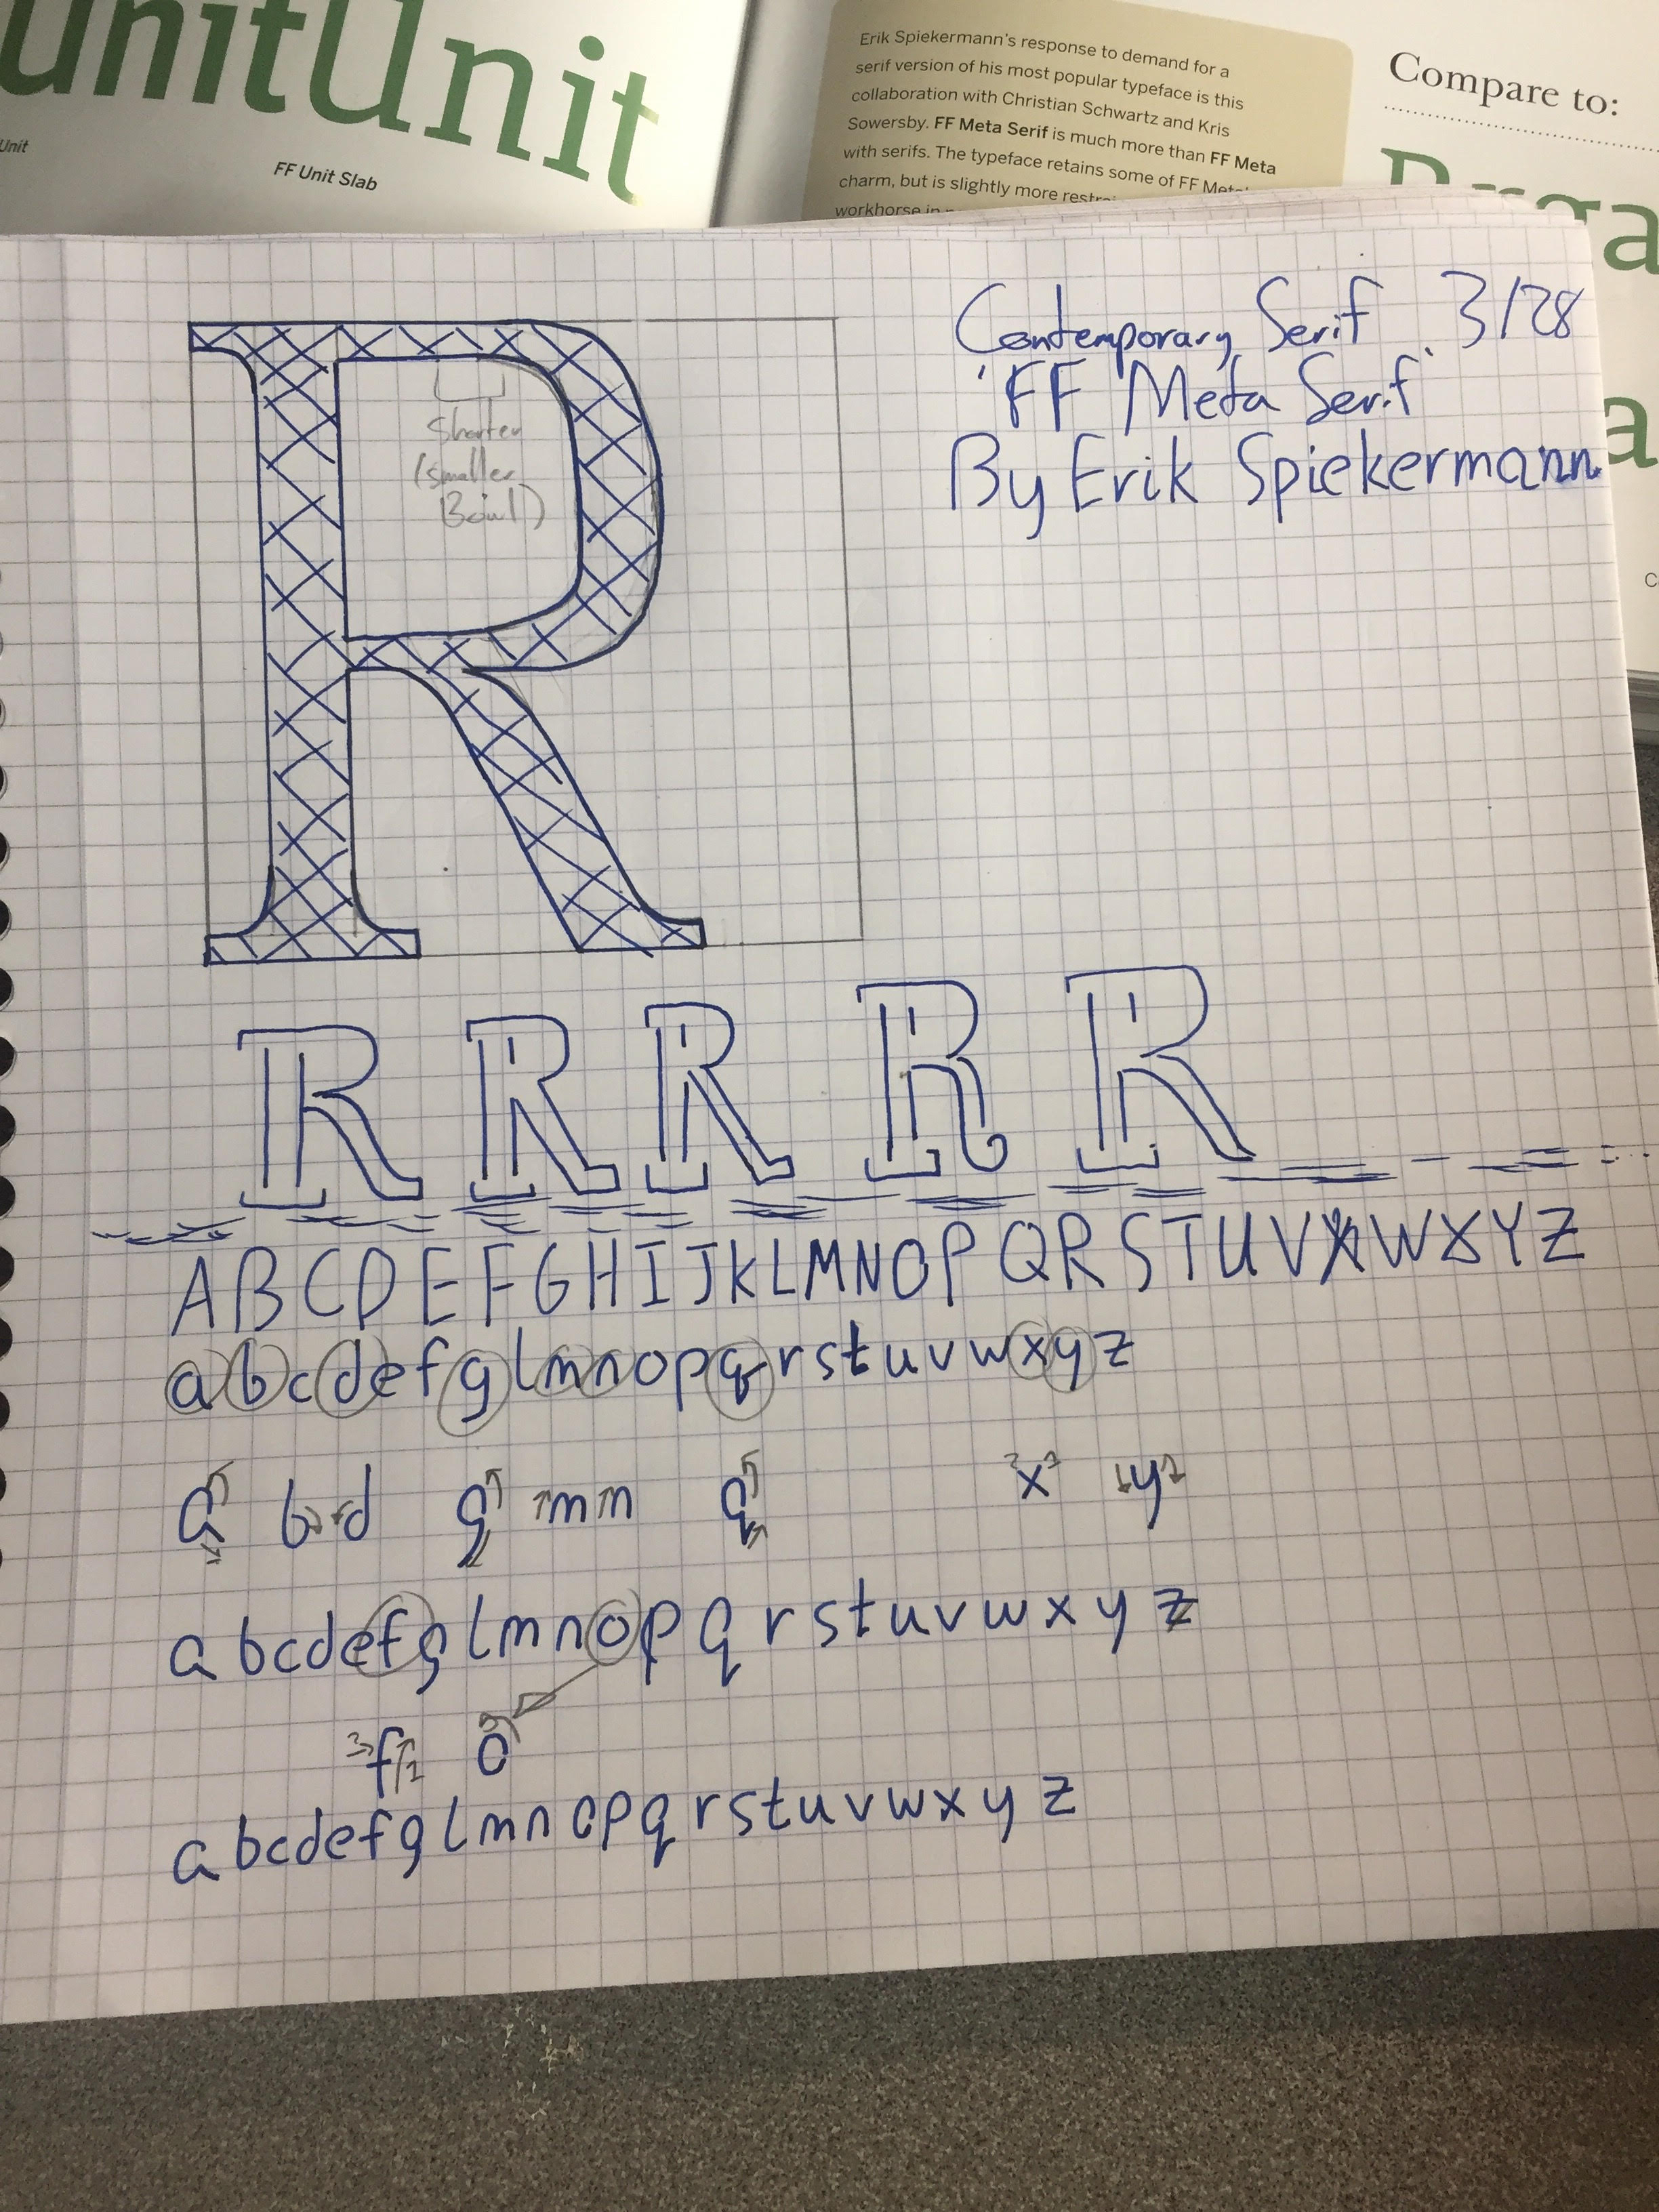 unitUnit
Unit
FF Unit Slab
Erik Spiekermann's response to demand for a
serif version of his most popular typeface is this
collaboration with Christian Schwartz and Kris
Sowersby. FF Meta Serif is much more than FF Meta
with serifs. The typeface retains some of FF Meta'
charm, but is slightly more restrai
workhorse in
Compare to:
Rrga
a
Contemporary Serif 3/28
'FF Meta Serif'
By Erik Spiekermann
R
Shorter
(smaller
Bowl)
R R R R R
A B C D E F G H I J K L M N O P Q R S T U V W X Y Z
a b c d e f g l m n o p q r s t u v w x y z
a b d g m n q x y
a b c d e f g l m n o p q r s t u v w x y z
3 f 1 2 o
a b c d e f g l m n o p q r s t u v w x y z